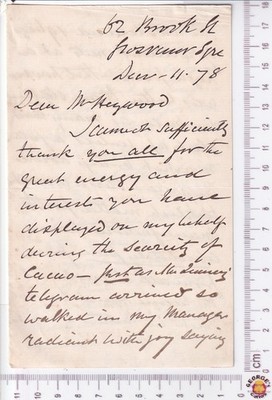 62 Brook St
Grosvenor Sqre
Dec - 11. 78
Dear Mr Heywood
I cannot sufficiently
thank you all for the
great energy and
interest you have
displayed on my behalf
during the scarcity of
Cacao - just as Mr
telegram arrived so
walked in my Manager
radiant with joy saying